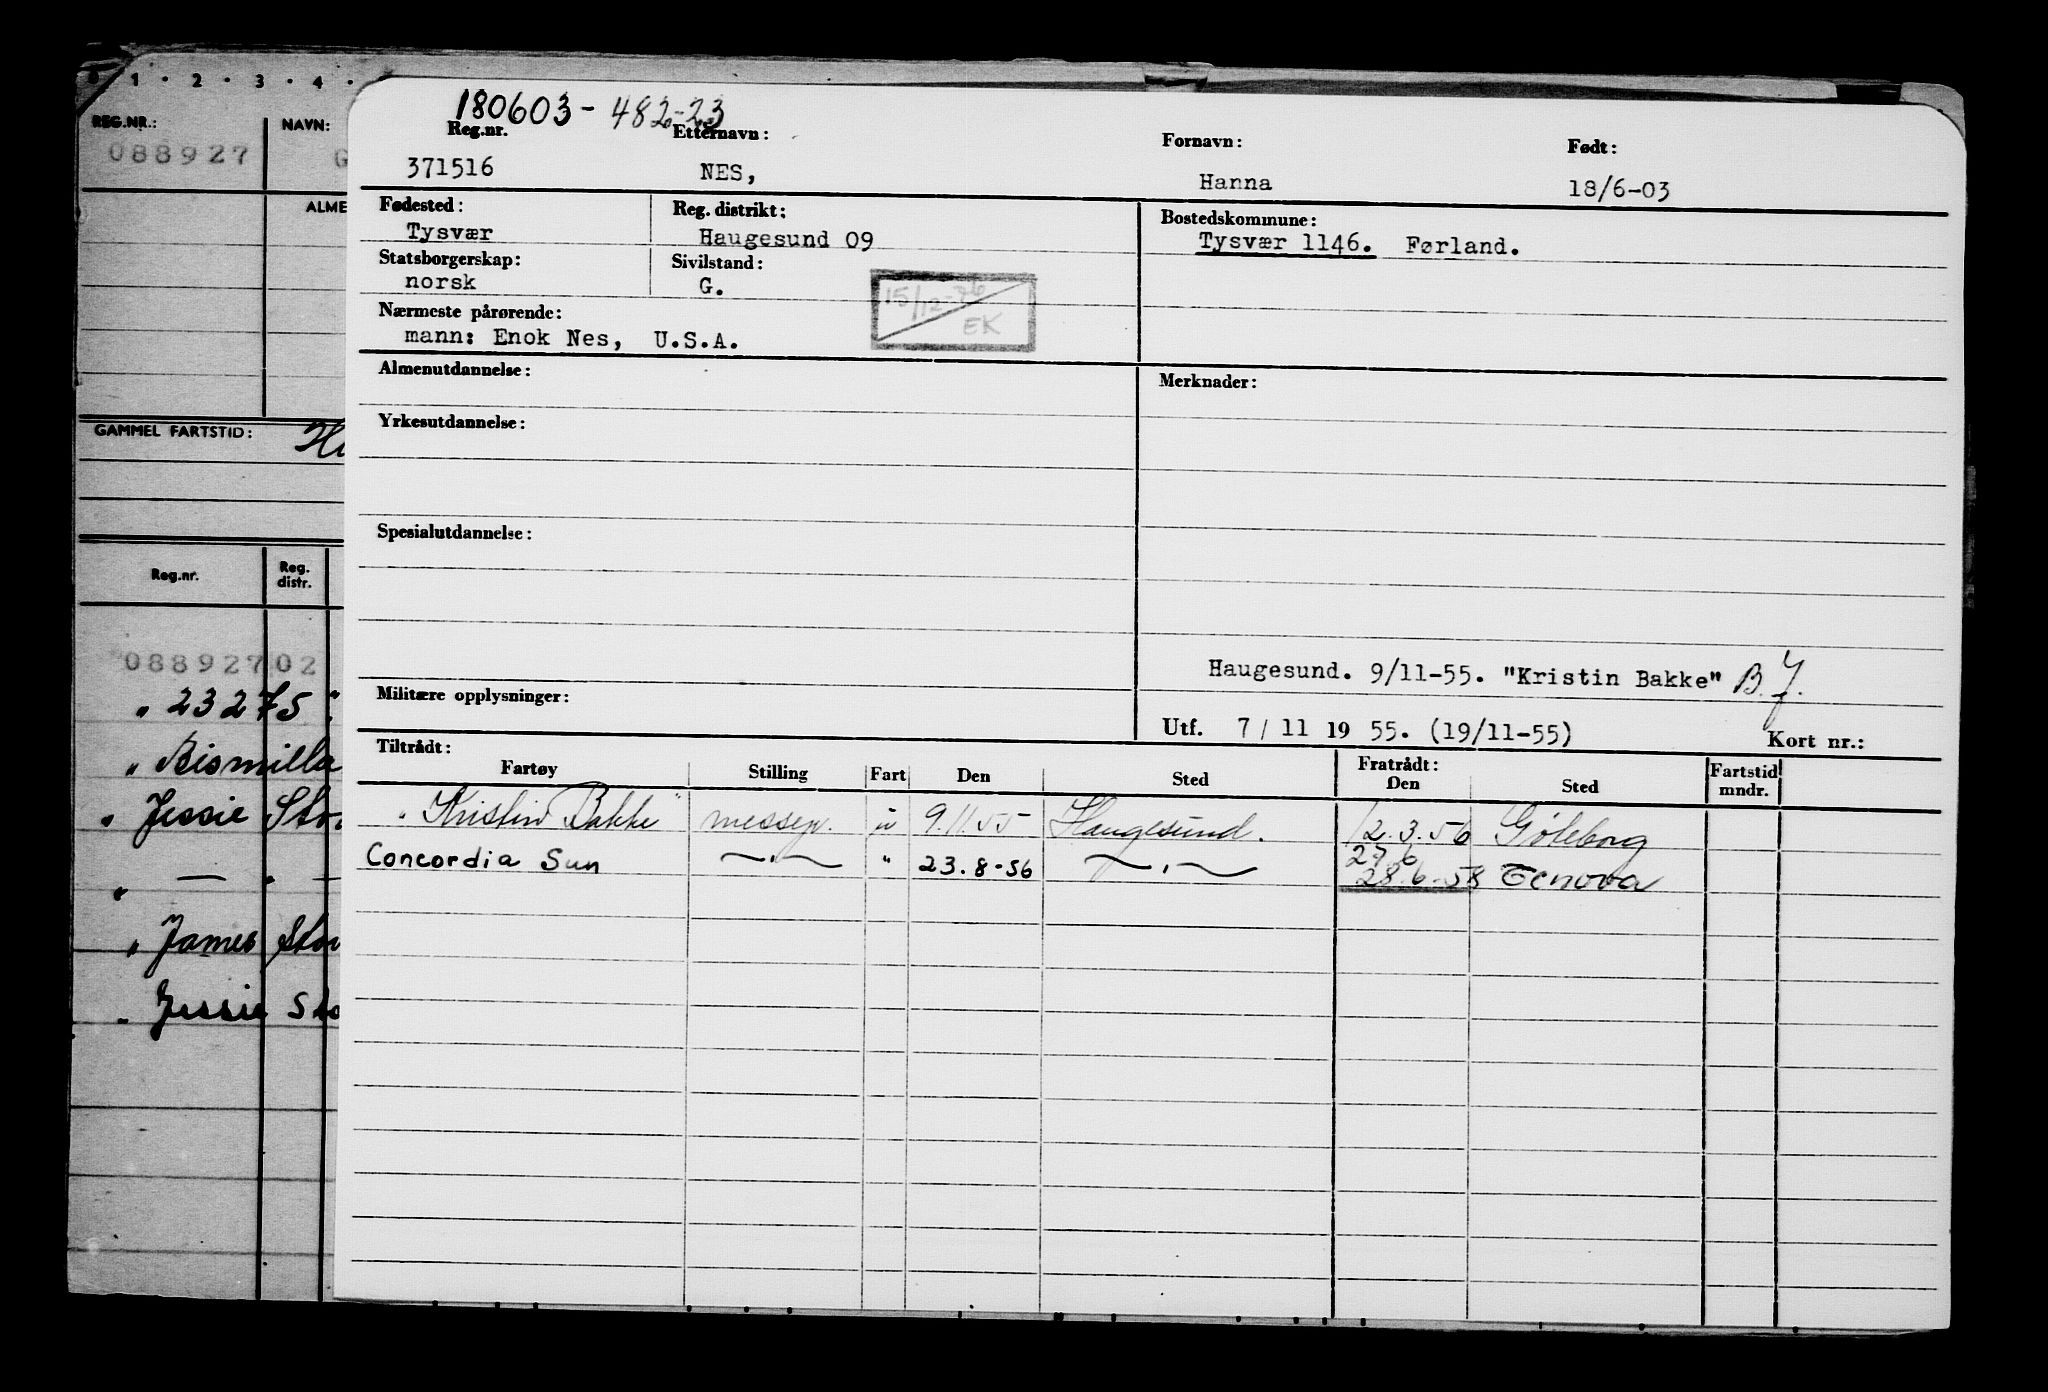 0 1 · 2 · 3 · 4 ·
REG.NR.: NAVN:
088927 G
ALME
GAMMEL FARTSTID:
Reg.nr. Reg. distr.
08892702
" 23275 "
" Bismilla
" Jessie Sto
" — " —
" James Sto
" Jessie Sto
180603-482-23
Reg.nr. Etternavn: Fornavn: Født:
371516 NES, Hanna 18/6-03
Fødested: Reg. distrikt: Bostedskommune:
Tysvær Haugesund 09 Tysvær 1146. Førland.
Statsborgerskap: Sivilstand:
norsk G.
15/12-76
EK
Nærmeste pårørende:
mann: Enok Nes, U.S.A.
Almenutdannelse: Merknader:
Yrkesutdannelse:
Spesialutdannelse:
Haugesund. 9/11-55. "Kristin Bakke" B.J.
Militære opplysninger:
Utf. 7/11 19 55. (19/11-55) Kort nr.:
Tiltrådt: Fratrådt:
Fartøy Stilling Fart Den Sted Den Sted Fartstid mndr.
"Kristin Bakke" messep. u 9.11.55 Haugesund. 12.3.56 Göteborg
27 6
Concordia Sun —"— " 23.8-56 —"— 28.6-58 Genova